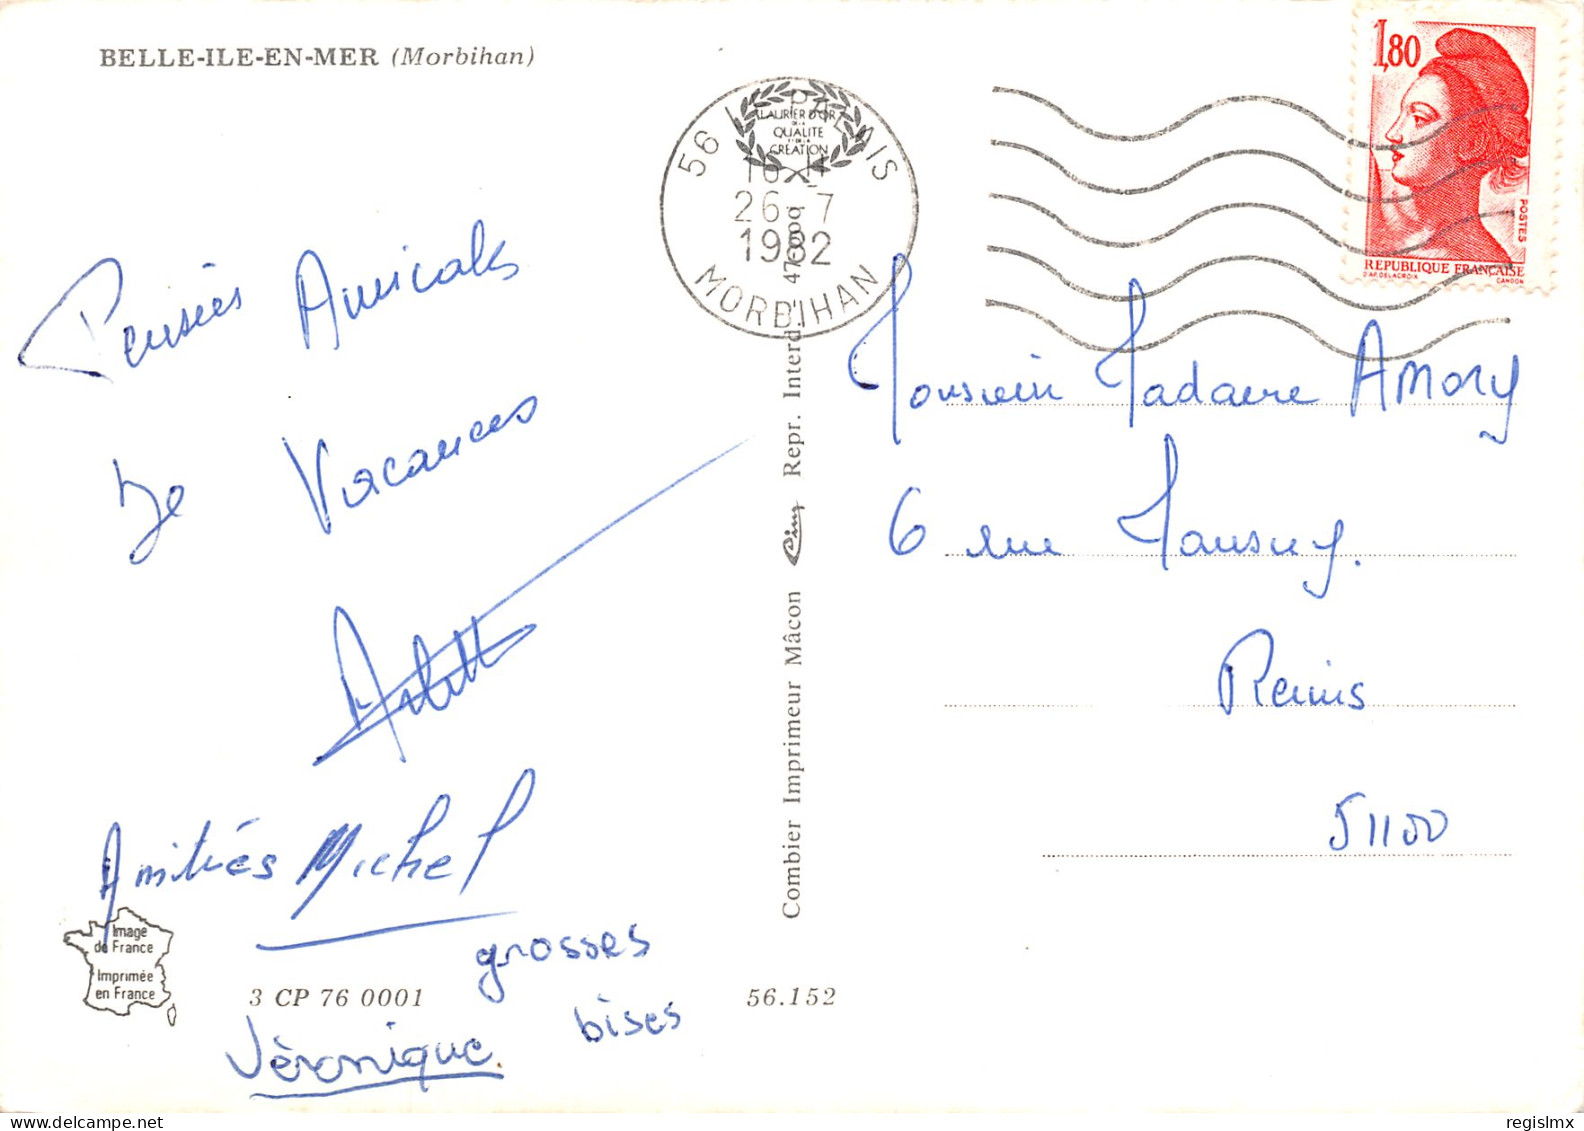 BELLE-ILE-EN-MER (Morbihan)
Pensées Amicales
de Vacances
Amitiés Michel
grosses
bises
Véronique.
Image
de France
Imprimée
en France
3 CP 76 0001
56.152
Combier Imprimeur Mâcon Repr. Interd. 47-009
56 LE PALAIS
LAURIER D'OR
DE LA
QUALITÉ
ET DE LA
CRÉATION
26-7
1982
MORBIHAN
1,80
POSTES
RÉPUBLIQUE FRANÇAISE
D'AP. DELACROIX
GANDON
Monsieur Madame AMORY
6 rue
Reims
51100
regislmx